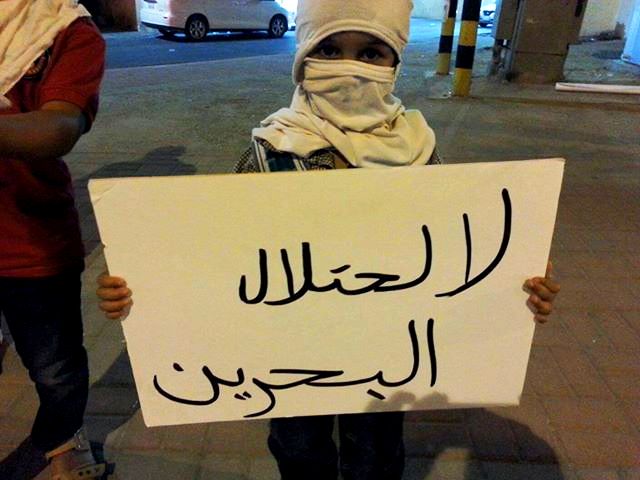 لا لحتلال
البحرين